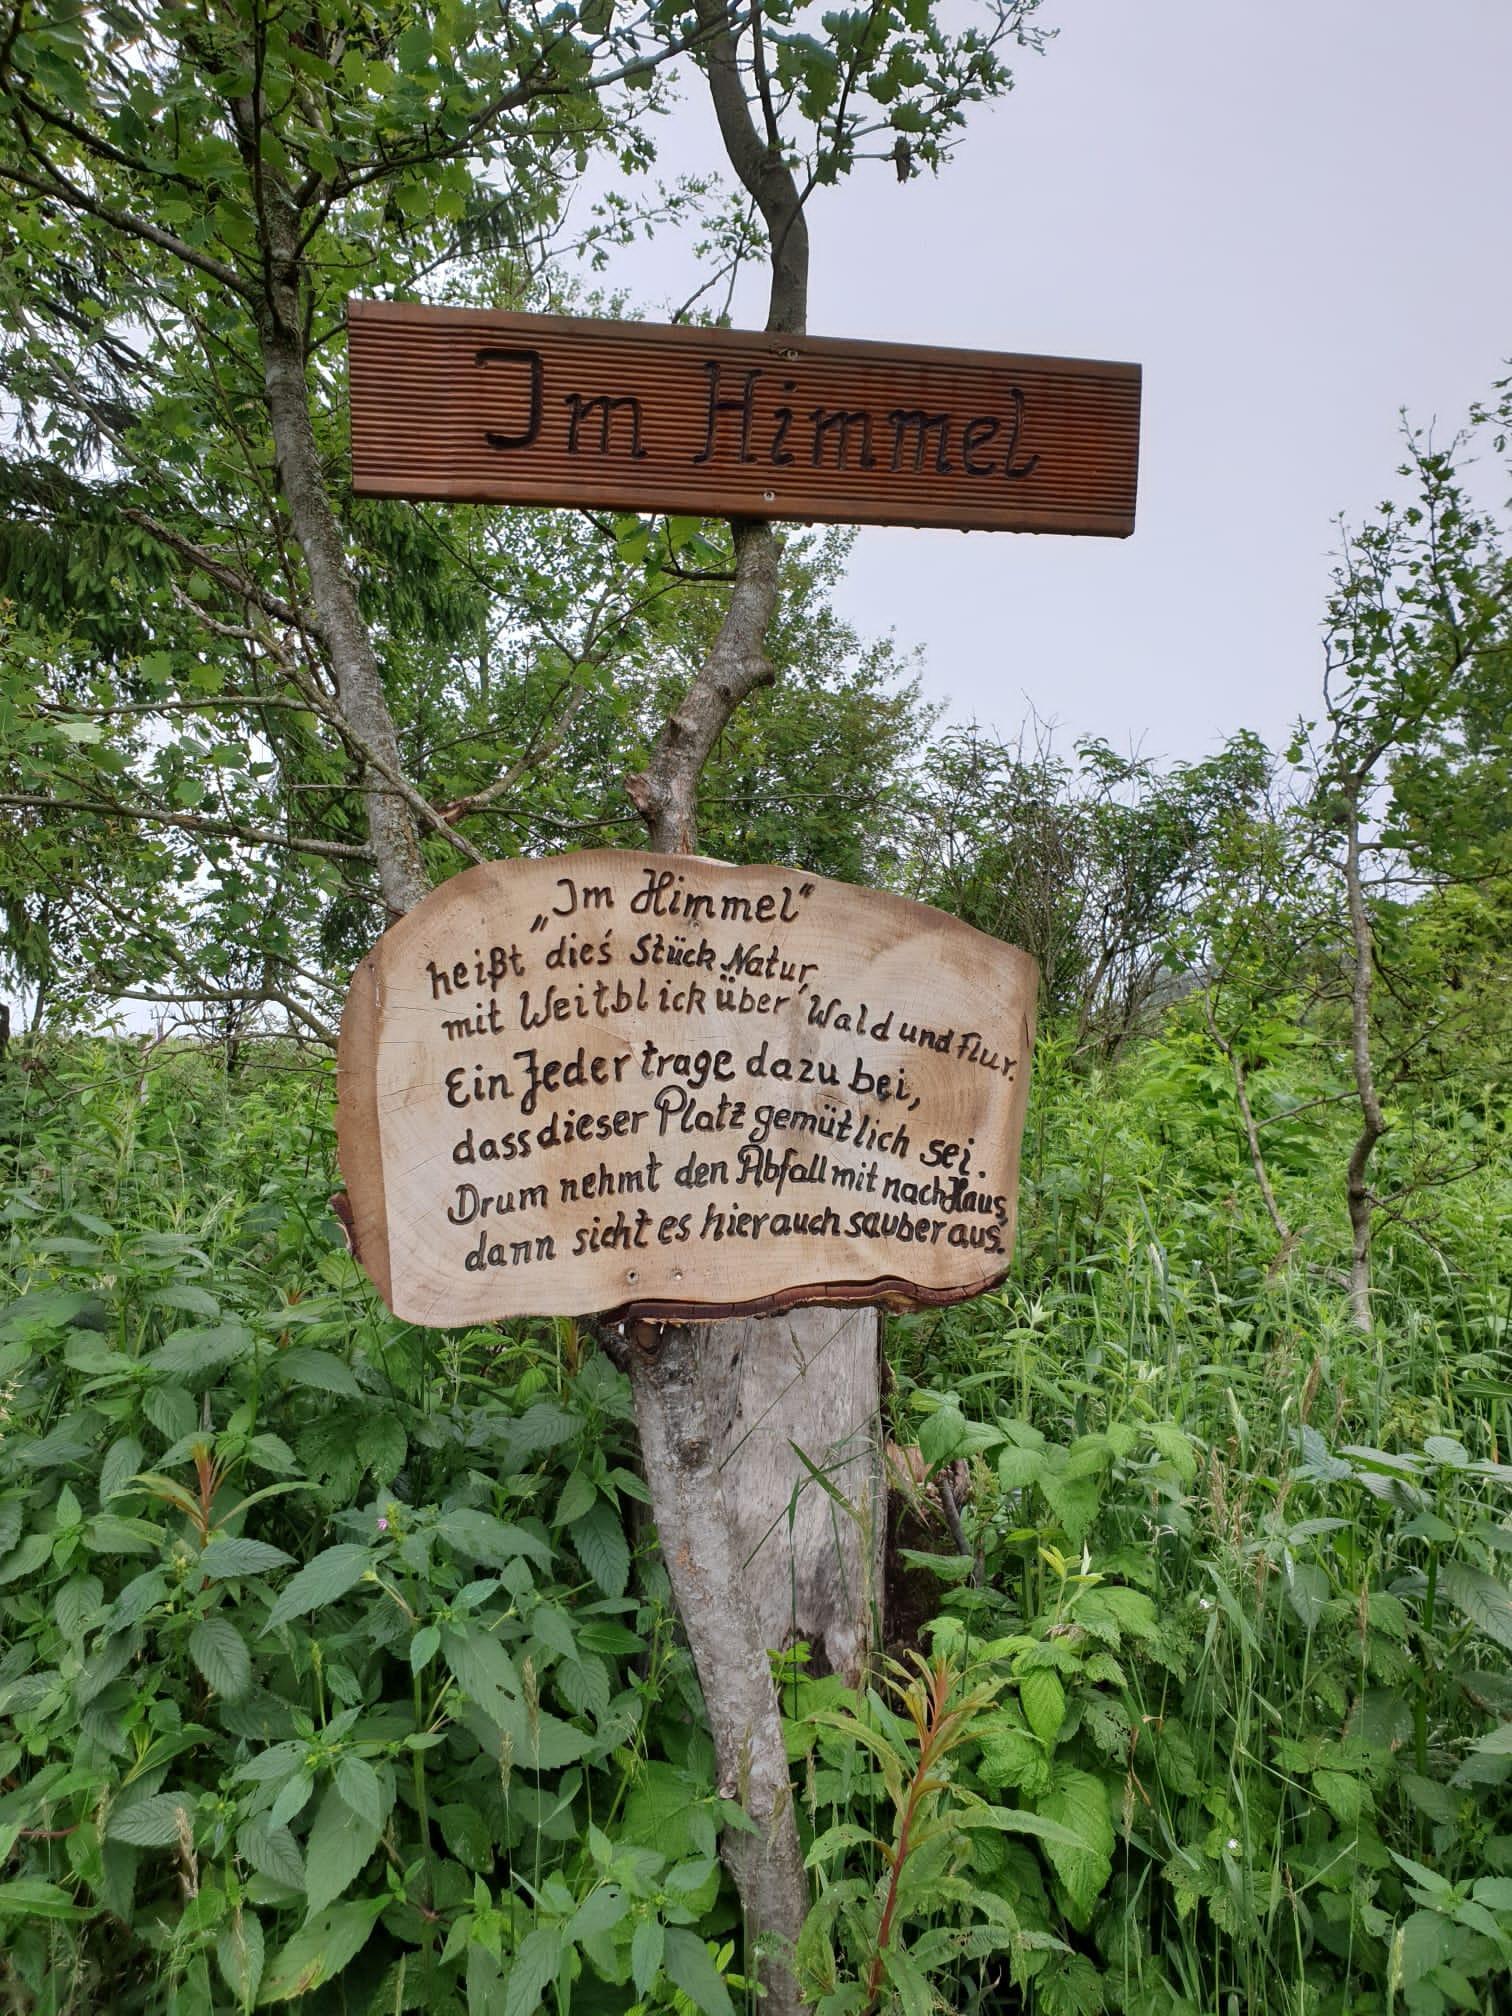 Im Himmel
„Im Himmel“
heißt dieś Stück Natur,
mit Weitblick über Wald und Flur.
Ein Jeder trage dazu bei,
dass dieser Platz gemütlich sei.
Drum nehmt den Abfall mit nach Haus,
dann sieht es hier auch sauber aus.